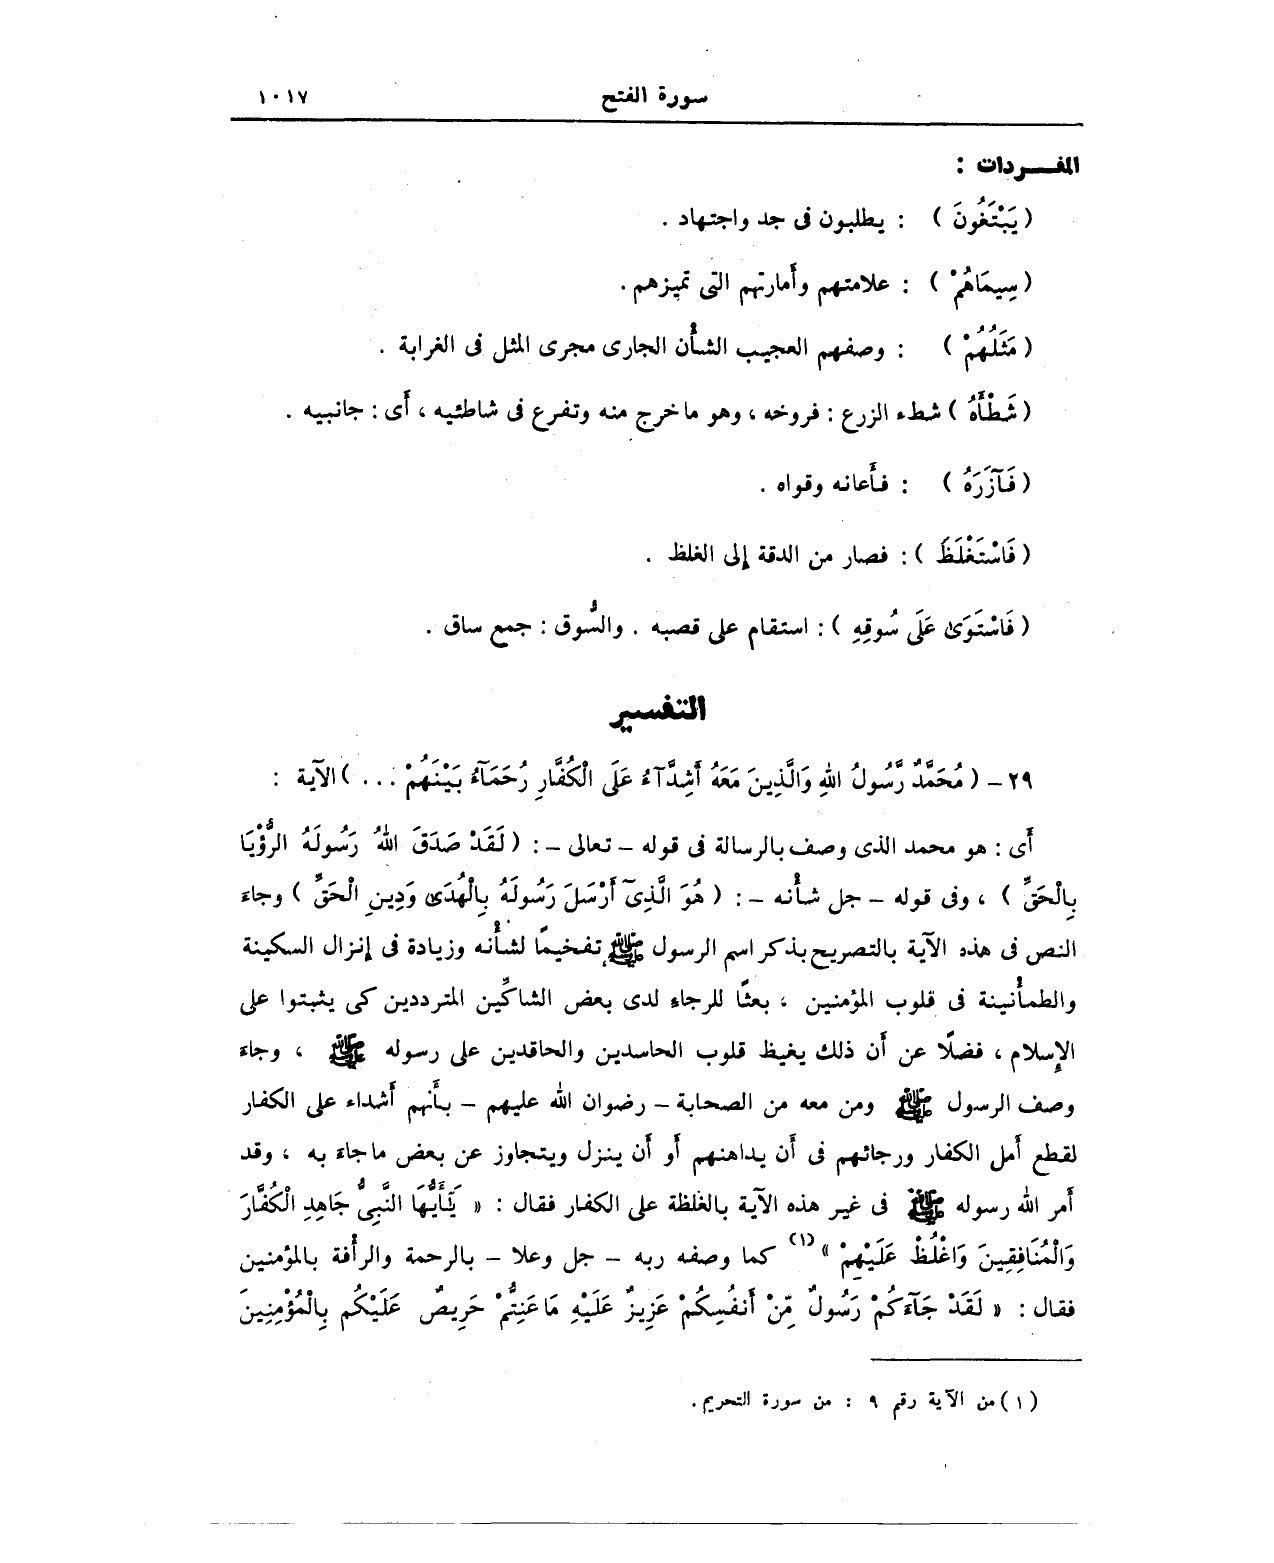 سورة الفتح ١٠١٧
المفردات :
( يَبْتَغُونَ ) : يطلبون فى جد واجتهاد .
( سِيمَاهُمْ ) : علامتهم وأمارتهم التى تميزهم .
( مَثَلُهُمْ ) : وصفهم العجيب الشأن الجارى مجرى المثل فى الغرابة .
( شَطْأَهُ ) شطء الزرع : فروخه ، وهو ماخرج منه وتفرع فى شاطئيه ، أى : جانبيه .
( فَآزَرَهُ ) : فأعانه وقواه .
( فَاسْتَغْلَظَ ) : فصار من الدقة إلى الغلظ .
( فَاسْتَوَىٰ عَلَى سُوقِهِ ) : استقام على قصبه . والسُّوق : جمع ساق .
التفسير
٢٩ – ( مُحَمَّدٌ رَّسُولُ اللهِ وَالَّذِينَ مَعَهُ أَشِدَّآءُ عَلَى الْكُفَّارِ رُحَمَآءُ بَيْنَهُمْ . . . ) الآية :
أى : هو محمد الذى وصف بالرسالة فى قوله – تعالى – : ( لَقَدْ صَدَقَ اللهُ رَسُولَهُ الرُّؤْيَا
بِالْحَقِّ ) ، وفى قوله – جل شأنه – : ( هُوَ الَّذِىٓ أَرْسَلَ رَسُولَهُ بِالْهُدَىٰ وَدِينِ الْحَقِّ ) وجاء
النص فى هذه الآية بالتصريح بذكر اسم الرسول ﷺ تفخيمًا لشأنه وزيادة فى إنزال السكينة
والطمأنينة فى قلوب المؤمنين ، بعثًا للرجاء لدى بعض الشاكِّين المترددين كى يثبتوا على
الإسلام ، فضلًا عن أن ذلك يغيظ قلوب الحاسدين والحاقدين على رسوله ﷺ ، وجاء
وصف الرسول ﷺ ومن معه من الصحابة – رضوان الله عليهم – بأنهم أشداء على الكفار
لقطع أمل الكفار ورجائهم فى أن يداهنهم أو أن ينزل ويتجاوز عن بعض ماجاء به ، وقد
أمر الله رسوله ﷺ فى غير هذه الآية بالغلظة على الكفار فقال : « يَٰٓأَيُّهَا النَّبِىُّ جَاهِدِ الْكُفَّارَ
وَالْمُنَافِقِينَ وَاغْلُظْ عَلَيْهِمْ » (١) كما وصفه ربه – جل وعلا – بالرحمة والرأفة بالمؤمنين
فقال : « لَقَدْ جَآءَكُمْ رَسُولٌ مِّنْ أَنفُسِكُمْ عَزِيزٌ عَلَيْهِ مَاعَنِتُّمْ حَرِيصٌ عَلَيْكُم بِالْمُؤْمِنِينَ
( ١ ) من الآية رقم ٩ : من سورة التحريم .